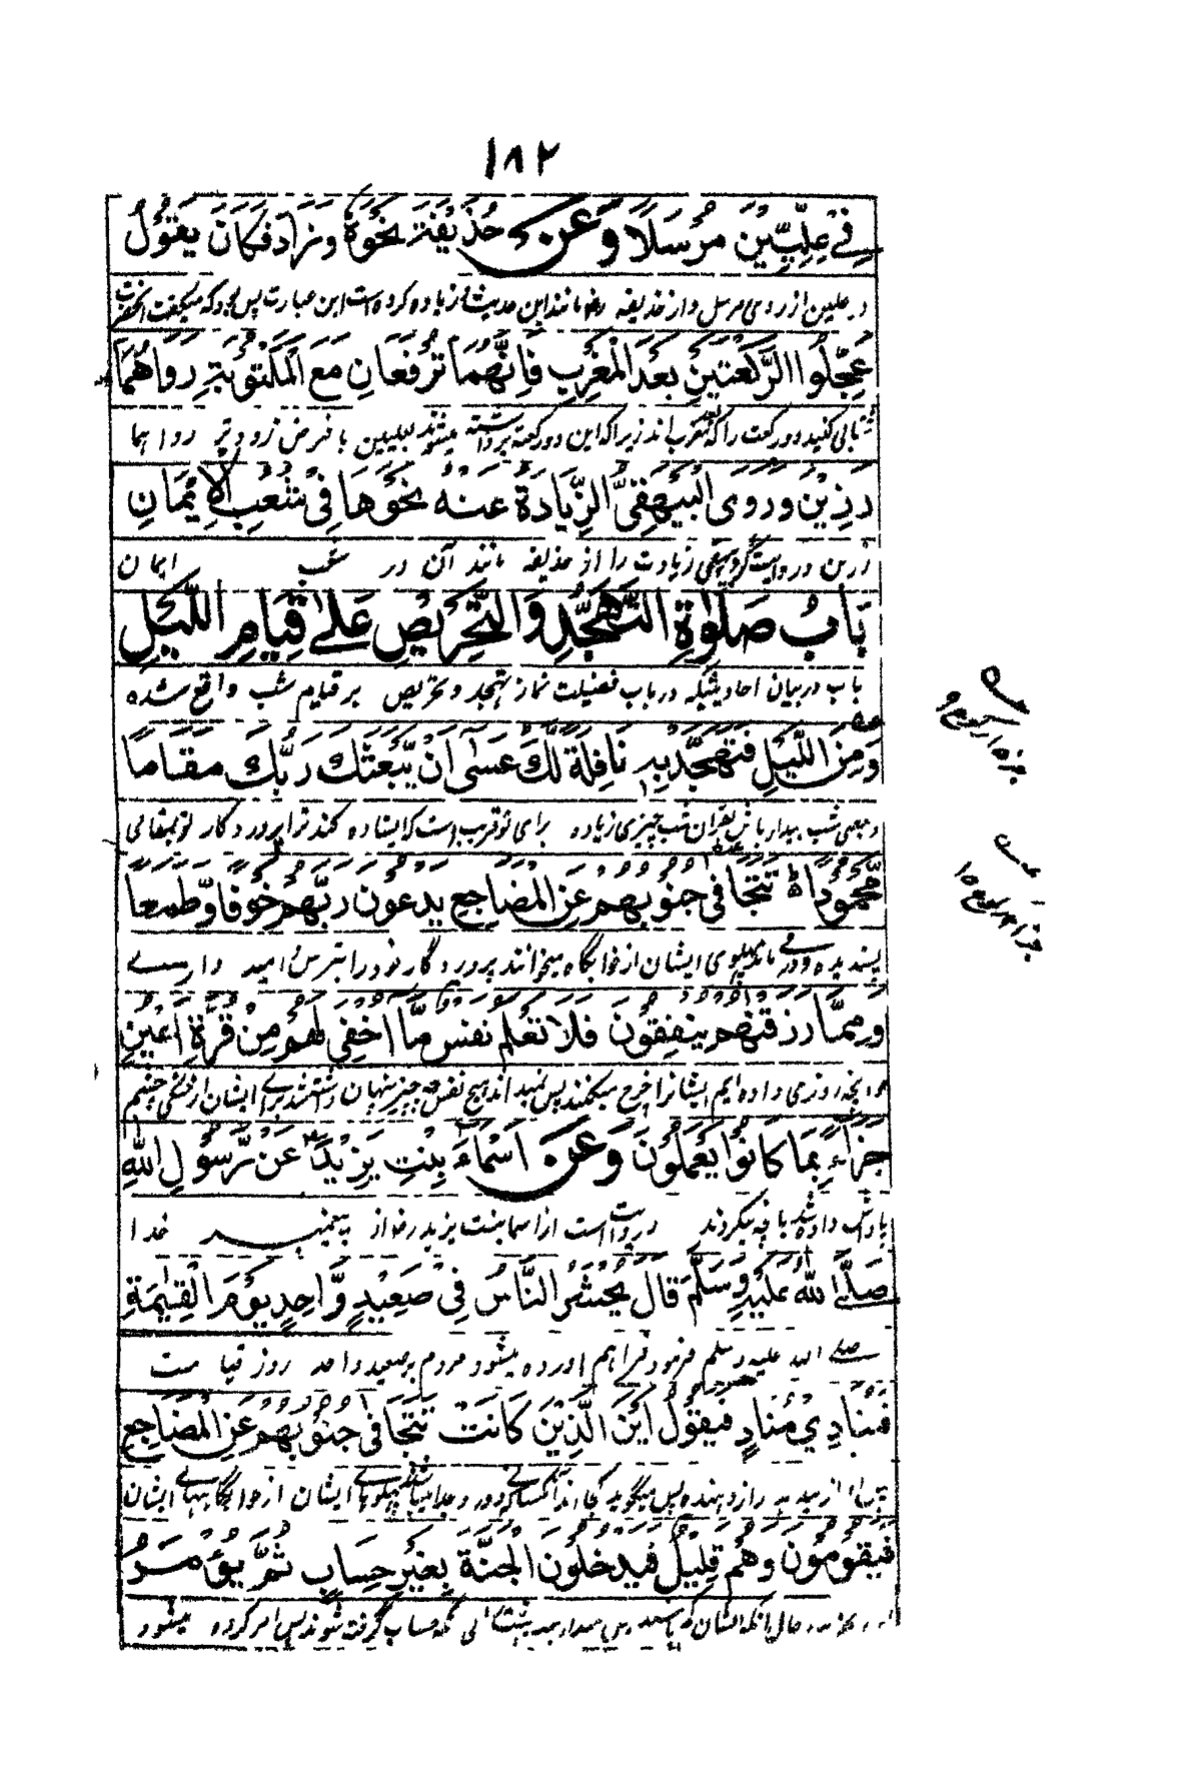 ١٨٢
فِي عِلِّيِّيْنَ مُرْسَلًا وَعَنْ حُذَيْفَةَ نَحْوَهٗ وَزَادَ فَكَانَ يَقُوْلُ
در علیین از روی مرسل و از حذیفه مانند این حدیث زیاده کرده است این عبارت پس بود که میگفت آنحضرت
عَجِّلُوا الرَّكْعَتَيْنِ بَعْدَ الْمَغْرِبِ فَاِنَّهُمَا تُرْفَعَانِ مَعَ الْمَكْتُوْبَةِ رَوَاهُمَا
شتابی کنید دو رکعت را که بعد مغرب اند زیرا که این دو رکعت برداشته میشوند بعلیین با فرض زودتر رواهما
رَزِيْنٌ وَرَوَى الْبَيْهَقِيُّ الزِّيَادَةَ عَنْهُ نَحْوَهَا فِيْ شُعَبِ الْاِيْمَانِ
رزین و روایت کرد بیهقی زیادت را از حذیفه مانند آن در شعب ایمان
بَابُ صَلٰوةِ التَّهَجُّدِ وَالتَّحْرِيْصِ عَلٰى قِيَامِ اللَّيْلِ
باب در بیان احادیثیکه در باب فضیلت نماز تهجد و تحریص بر قیام شب واقع شده
وَمِنَ اللَّيْلِ فَتَهَجَّدْ بِهٖ نَافِلَةً لَّكَ عَسٰى اَنْ يَّبْعَثَكَ رَبُّكَ مَقَامًا
و بعضی شب بیدار باش بقران شب چیزی زیاده برای تو قریب است که ایستاده کند ترا پروردگار تو بمقامی
مَّحْمُوْدًا تَتَجَافٰى جُنُوْبُهُمْ عَنِ الْمَضَاجِعِ يَدْعُوْنَ رَبَّهُمْ خَوْفًا وَّطَمَعًا
پسندیده دور می ماند پهلوی ایشان از خوابگاه میخوانند پروردگار خود را بترس و امید داری
وَمِمَّا رَزَقْنٰهُمْ يُنْفِقُوْنَ فَلَا تَعْلَمُ نَفْسٌ مَّا اُخْفِيَ لَهُمْ مِنْ قُرَّةِ اَعْيُنٍ
و آنچه روزی داده ایم ایشانرا خرج میکنند پس نمیداند هیچ نفس چه چیز پنهان داشته شد برای ایشان از خنکی چشم
جَزَاءً بِمَا كَانُوْا يَعْمَلُوْنَ وَعَنْ اَسْمَاءَ بِنْتِ يَزِيْدَ عَنْ رَّسُوْلِ اللّٰهِ
پاداش داده شد بآنچه میکردند و روایت است از اسما بنت یزید از پیغمبر خدا
صَلَّى اللّٰهُ عَلَيْهِ وَسَلَّمَ قَالَ يُحْشَرُ النَّاسُ فِيْ صَعِيْدٍ وَّاحِدٍ يَوْمَ الْقِيٰمَةِ
صلی الله علیه وسلم فرمود فراهم اورده میشود مردم بر صعید واحد روز قیامت
فَيُنَادِيْ مُنَادٍ فَيَقُوْلُ اَيْنَ الَّذِيْنَ كَانَتْ تَتَجَافٰى جُنُوْبُهُمْ عَنِ الْمَضَاجِعِ
دهنده پس میگوید کجا اند آنکسانیکه دور و جدا پهلوهای ایشان از خوابگاههای ایشان
فَيَقُوْمُوْنَ وَهُمْ قَلِيْلٌ فَيَدْخُلُوْنَ الْجَنَّةَ بِغَيْرِ حِسَابٍ ثُمَّ يُؤْمَرُ
حال آنکه ایشان حساب گرفته شوند پس امر کرده میشود